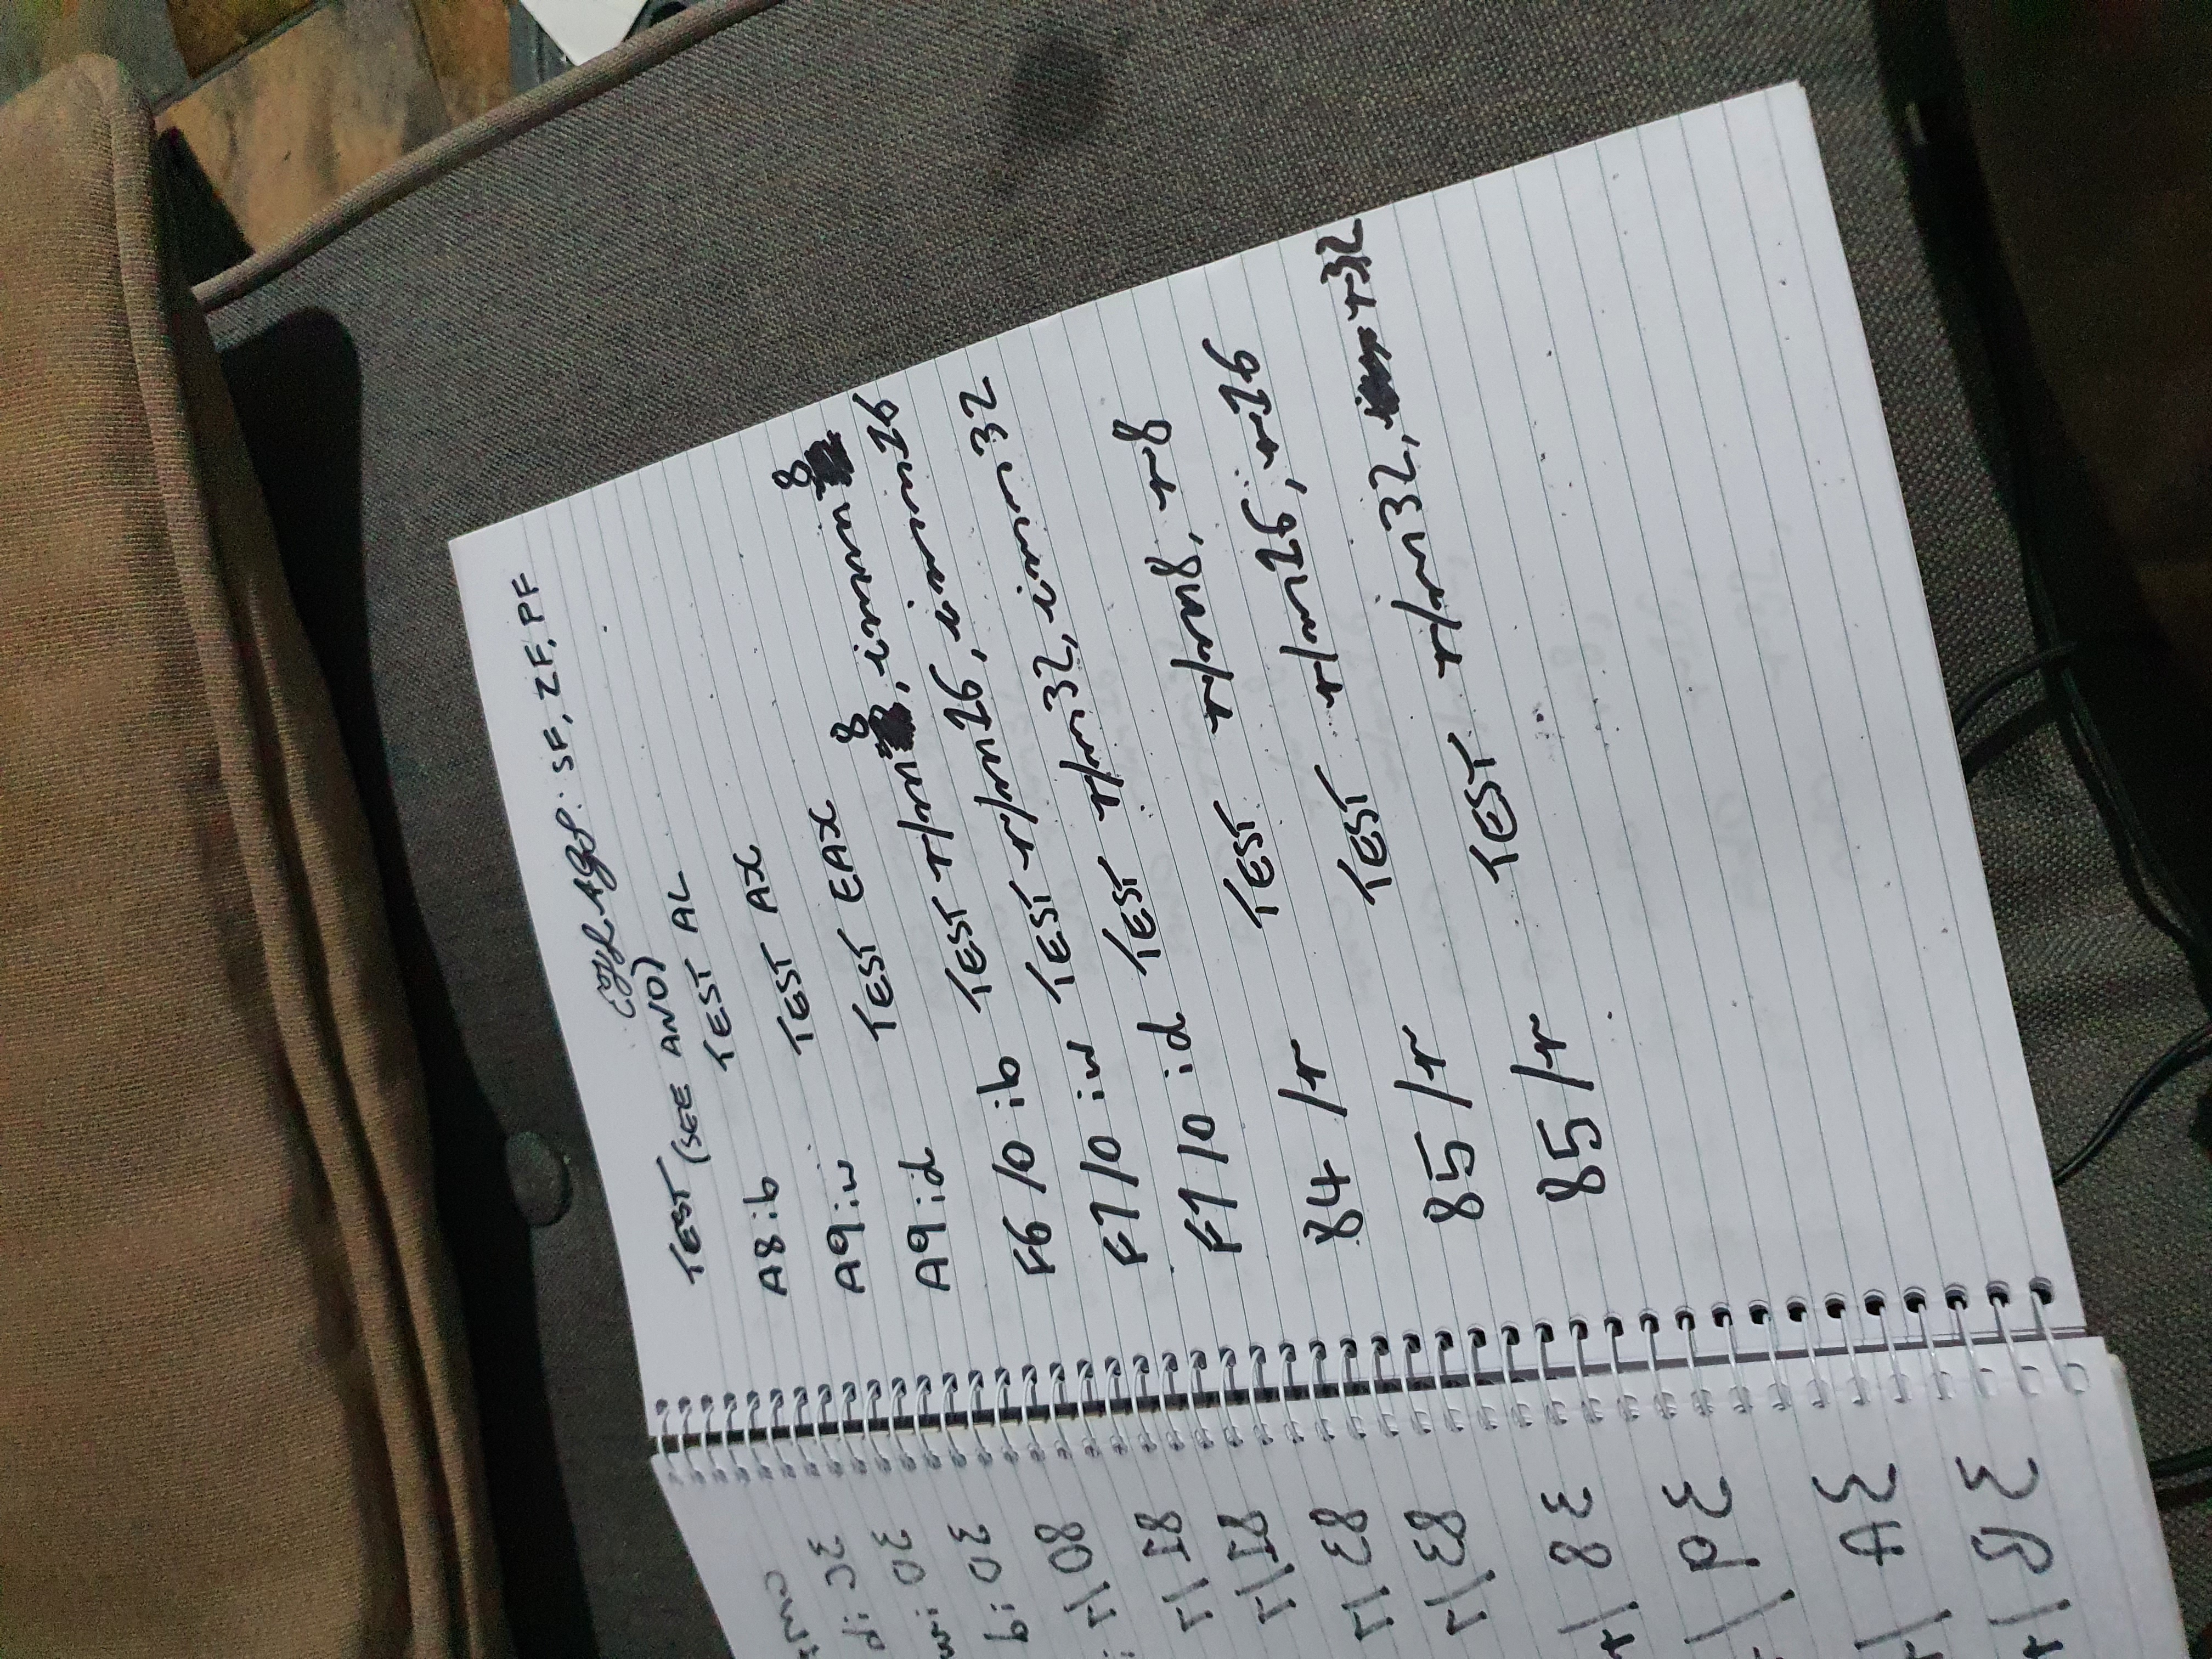 EFLAGS: SF, ZF, PF
TEST (SEE AND)
A8 ib TEST AL
A9 iw TEST AX
A9 id TEST EAX
F6 /0 ib TEST r/m8, imm8
F7/0 iw TEST r/m16, imm16
F7/0 id TEST r/m32, imm32
84 /r TEST r/m8, r8
85 /r TEST r/m16, r16
85 /r TEST r/m32, r32
3C ib
3D iw
3D id
80 /7
81 /7
81 /7
83 /7
83 /7
38 /r
39 /
3A /r
3B /r